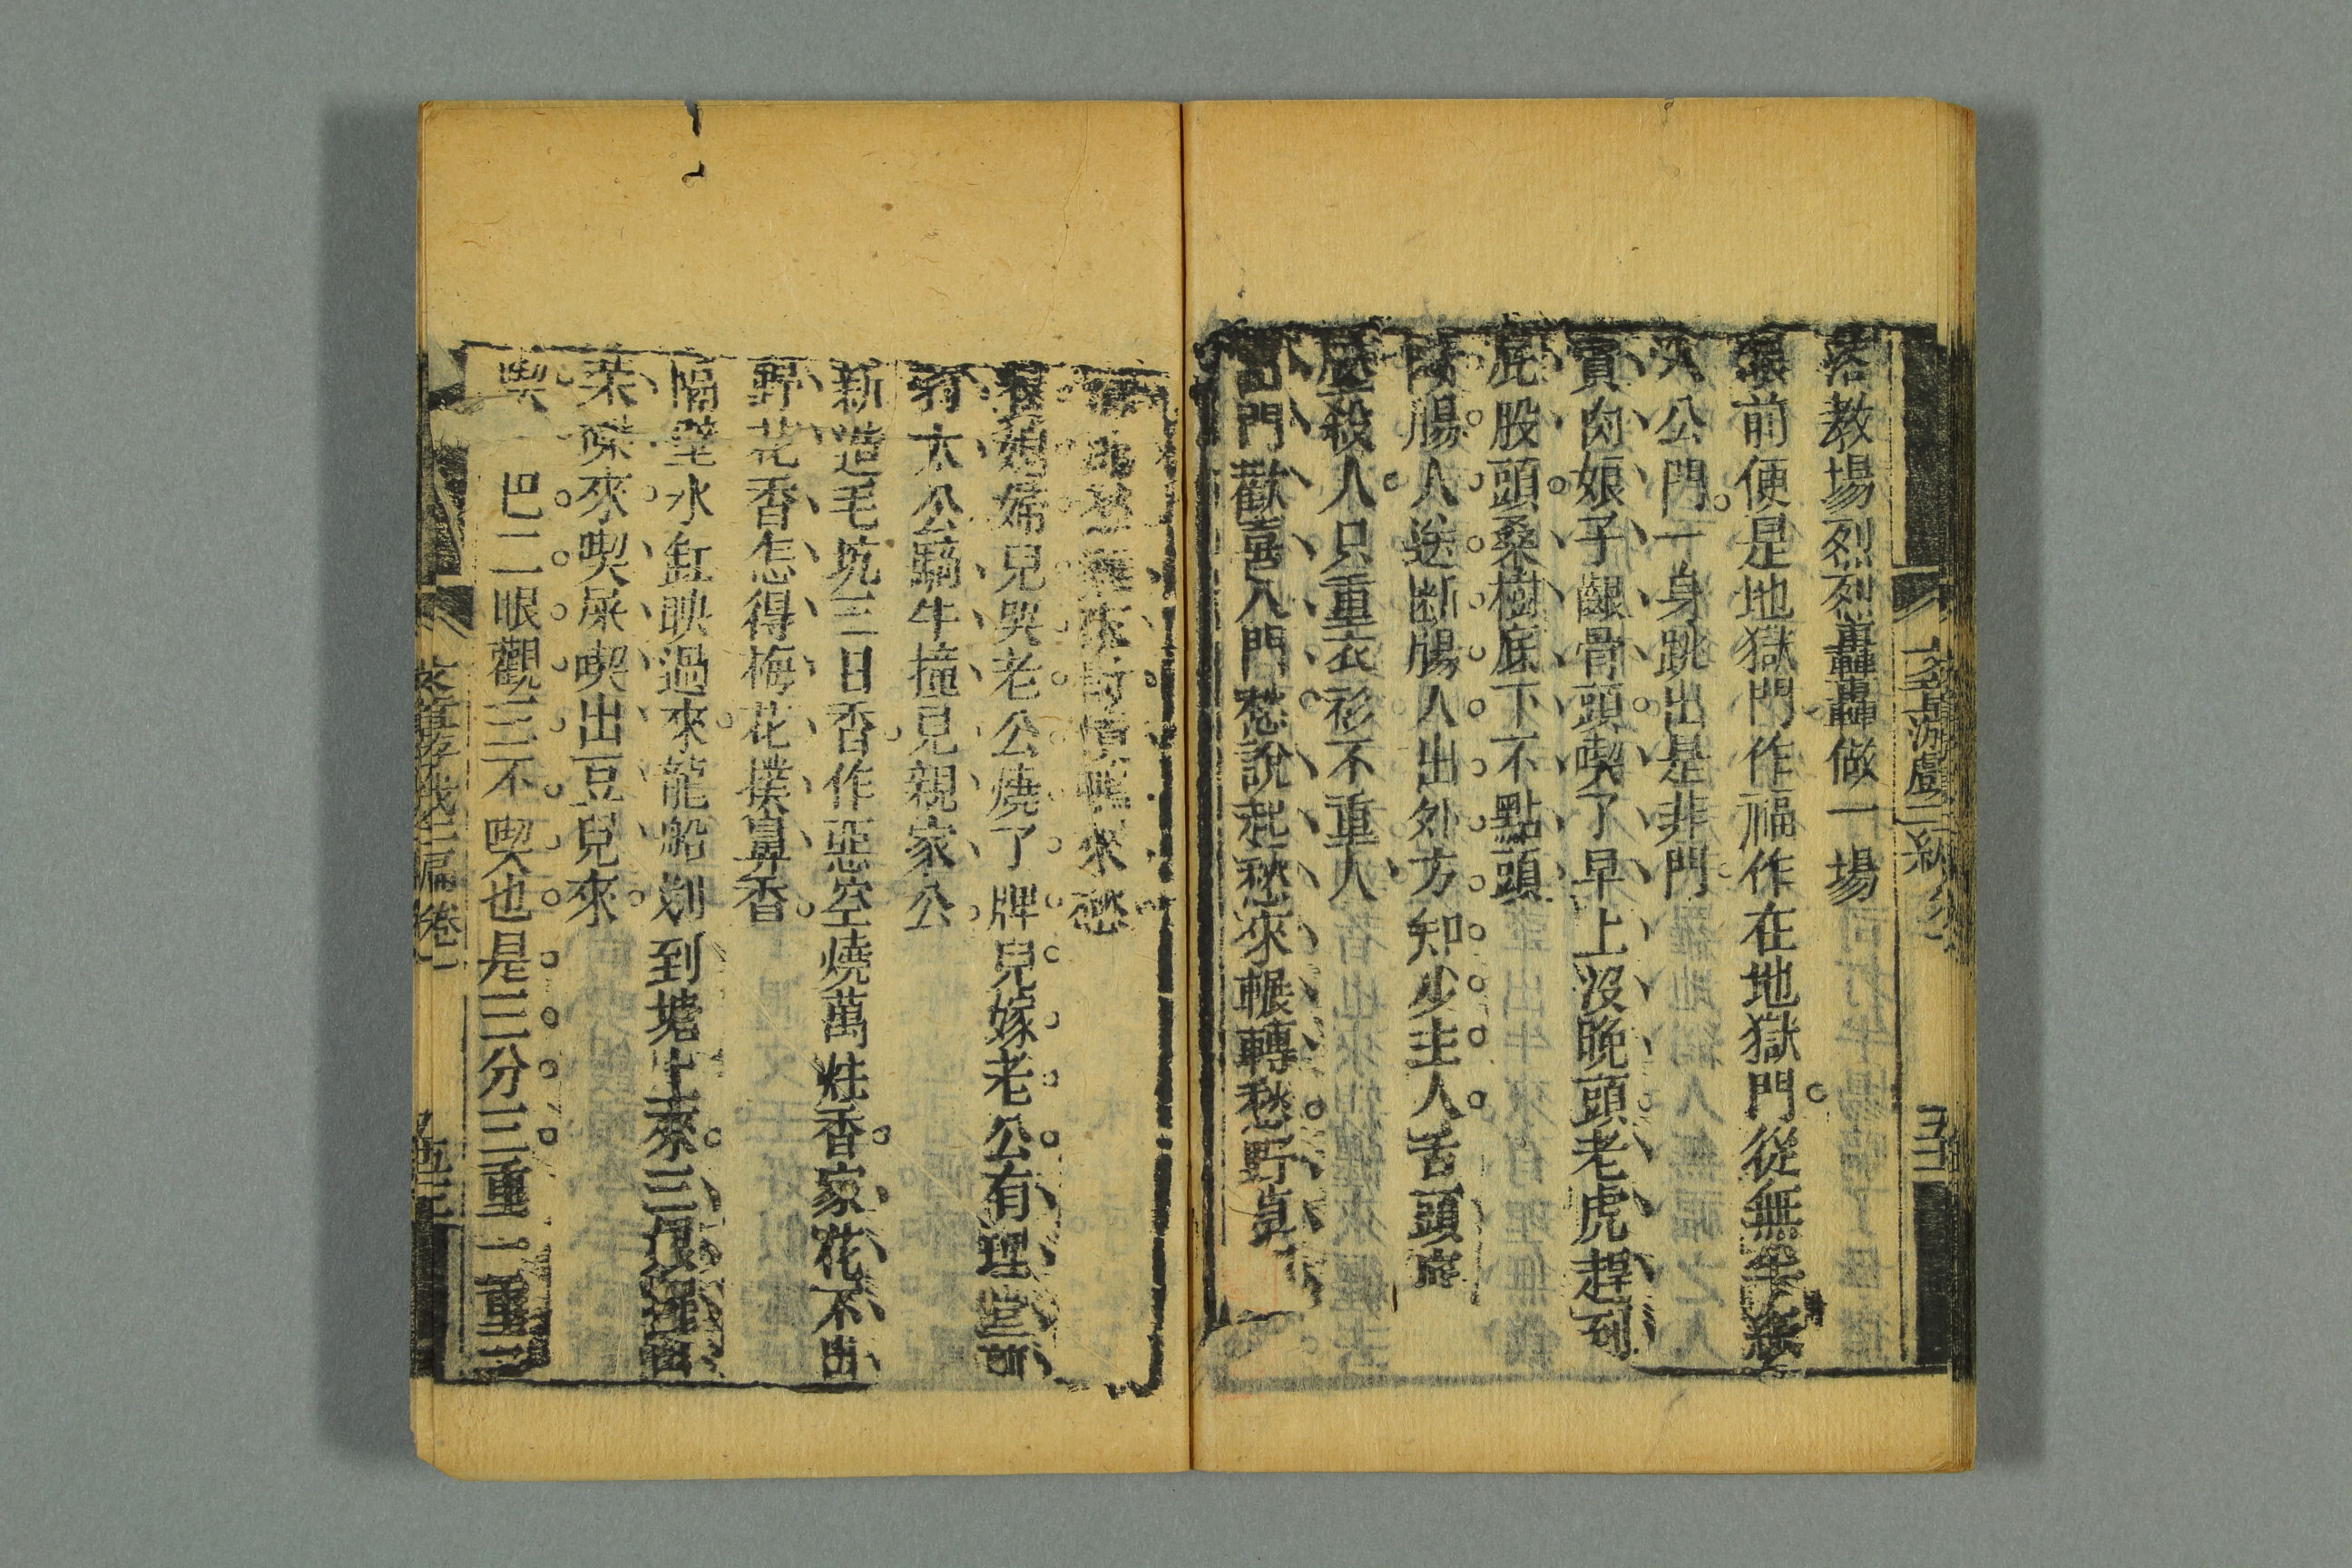 落教場烈烈轟轟做一場
眼前便是地獄門作福作在地獄門從無
入公門一身跳出是非門
賣肉娘子齦骨頭喫了早上沒晚頭老虎趕到
屁股頭桑樹底下不點頭
腸人送断腸人出外方知少主人舌頭底
壓殺人只重衣衫不重人
出門歡喜入門愁說起愁來輾轉愁野
來愁
媳婦兒哭老公燒了牌兒嫁老公有理堂前
打太公騎牛撞見親家公
新造毛坑三日香作惡空燒萬炷香家花不出
野花香怎得梅花撲鼻香
隔壁水缸映過來龍船划到塘上來三
茶喋來喫屎喫出豆兒來
喫 巴二眼觀三不喫也是三分三重一重三
文章游戲三編
文章游戲三編 卷一